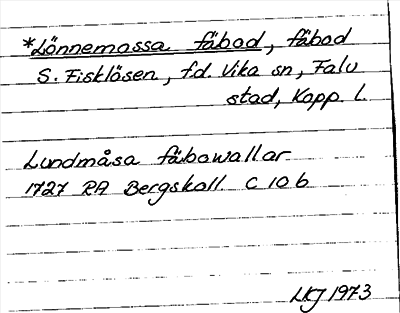 *Lönnemossa fäbod, fäbod
S. Fisklösen, f.d. Vika sn, Falu
stad, Kopp. L.
Lundmåsa fäbowallar
1727 RA Bergskoll. C 10 b
LKJ 1973